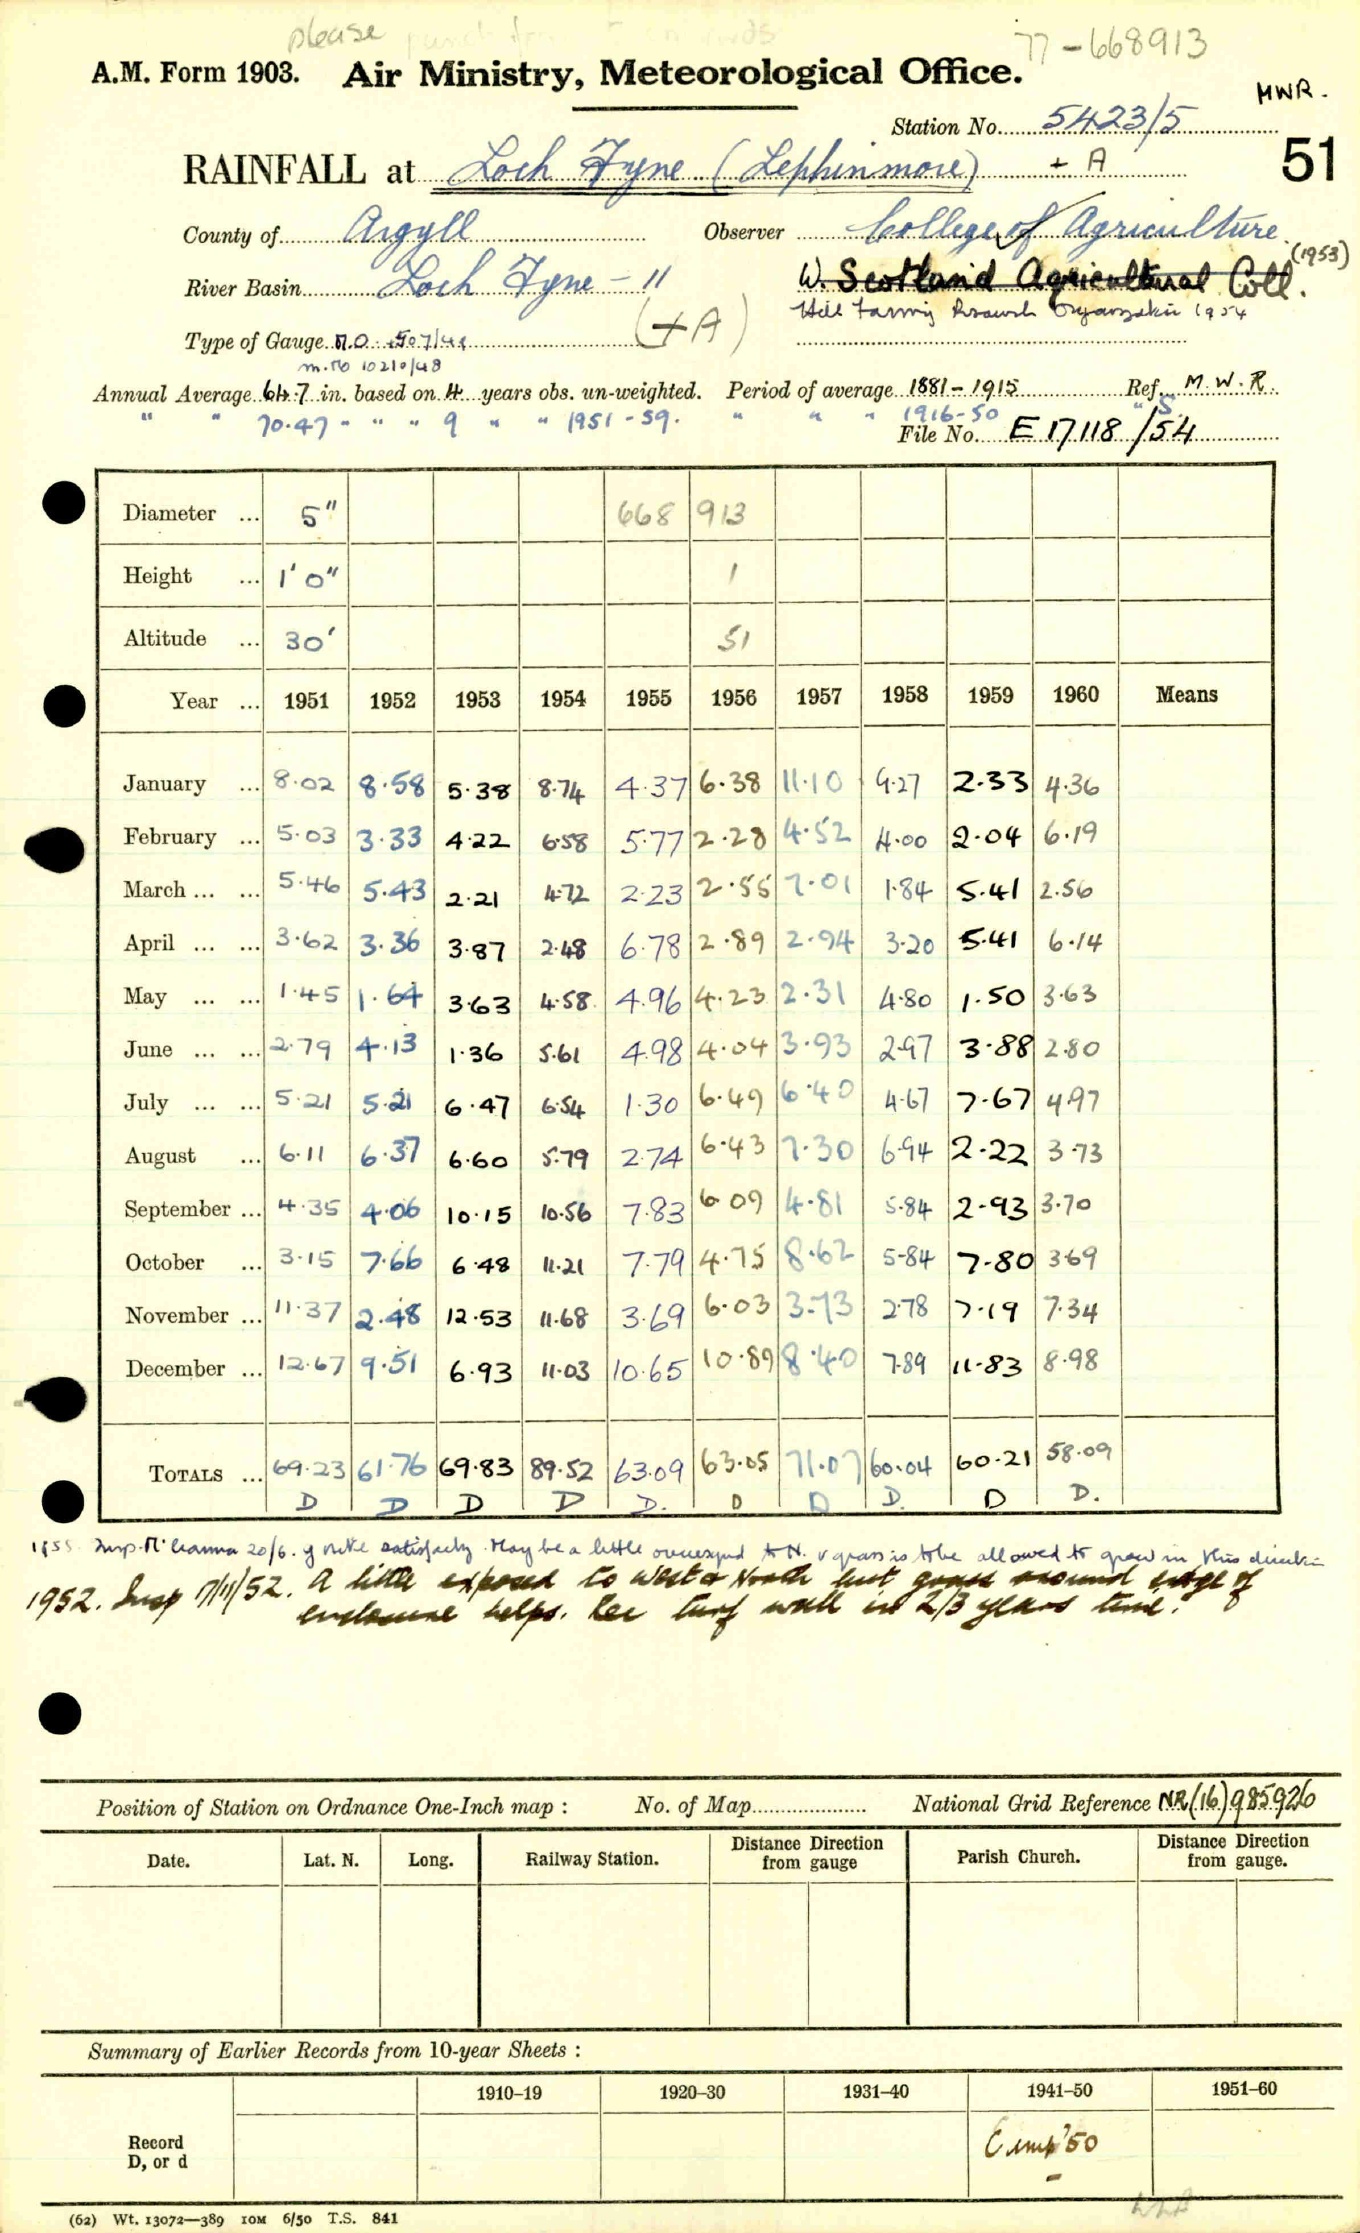 please
77-668913
A.M. Form 1903. Air Ministry, Meteorological Office.
MWR.
Station No. 5423/5
RAINFALL at Loch Fyne (Lephinmore) + A
51
County of Argyll Observer College of Agriculture
River Basin Loch Fyne - 11 W. Scotland Agricultural Coll. (1953)
(+A) Hill Farming Research Organisation 1954
Type of Gauge M.O. 507/48
M.O 10210/48
Annual Average 64.7 in. based on 4 years obs. un-weighted. Period of average 1881-1915 Ref. M.W.R.
" " 70.47 " " " 9 " " 1951-59. " " " 1916-50 " S.
File No. E 17118/54
Diameter ... 5" 668 913
Height ... 1' 0" 1
Altitude ... 30' 51
Year ... 1951 1952 1953 1954 1955 1956 1957 1958 1959 1960 Means
January ... 8.02 8.58 5.38 8.74 4.37 6.38 11.10 9.27 2.33 4.36
February ... 5.03 3.33 4.22 6.58 5.77 2.28 4.52 4.00 2.04 6.19
March ... ... 5.46 5.43 2.21 4.72 2.23 2.55 7.01 1.84 5.41 2.56
April ... ... 3.62 3.36 3.87 2.48 6.78 2.89 2.94 3.20 5.41 6.14
May ... ... 1.45 1.64 3.63 4.58 4.96 4.23 2.31 4.80 1.50 3.63
June ... ... 2.79 4.13 1.36 5.61 4.98 4.04 3.93 2.97 3.88 2.80
July ... ... 5.21 5.21 6.47 6.54 1.30 6.49 6.40 4.67 7.67 4.97
August ... 6.11 6.37 6.60 5.79 2.74 6.43 7.30 6.94 2.22 3.73
September ... 4.35 4.06 10.15 10.56 7.83 6.09 4.81 5.84 2.93 3.70
October ... 3.15 7.66 6.48 11.21 7.79 4.75 8.62 5.84 7.80 3.69
November ... 11.37 2.48 12.53 11.68 3.69 6.03 3.73 2.78 7.19 7.34
December ... 12.67 9.51 6.93 11.03 10.65 10.89 8.40 7.89 11.83 8.98
TOTALS ... 69.23 61.76 69.83 89.52 63.09 63.05 71.07 60.04 60.21 58.09
D D D D D. D D D. D D.
Insp. 20/6. satisfactory. May be a little overexposed to N. grass is to be allowed to grow in this direction
1952. Insp 7/11/52. A little exposed to West & North but grass around edge of
enclosure helps. Rec turf wall in 2/3 years time.
Position of Station on Ordnance One-Inch map : No. of Map National Grid Reference NR(16)985926
Date. Lat. N. Long. Railway Station. Distance Direction from gauge Parish Church. Distance Direction from gauge.
Summary of Earlier Records from 10-year Sheets :
1910-19 1920-30 1931-40 1941-50 1951-60
Record
D, or d
'50
(62) Wt. 13072-389 10M 6/50 T.S. 841